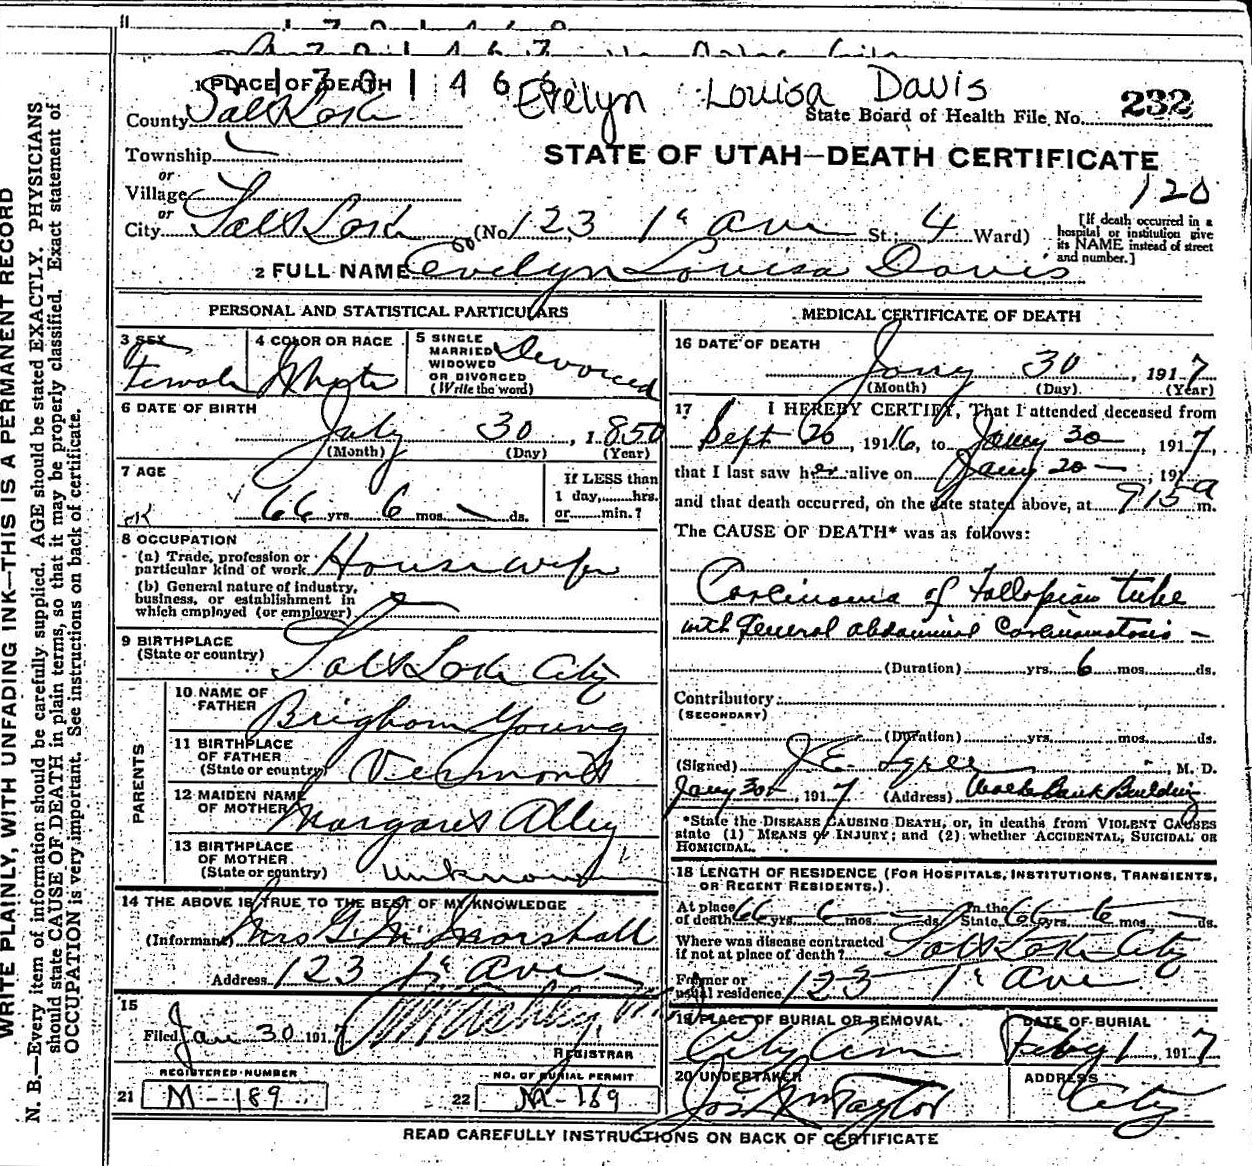 1701466
Evelyn Louisa Davis
1 PLACE OF DEATH
County Salt Lake
State Board of Health File No. 232
Township
or
Village
or
City Salt Lake (No. 123 1st Ave St.; 4 Ward)
STATE OF UTAH—DEATH CERTIFICATE
120
[If death occurred in a hospital or institution give its NAME instead of street and number.]
2 FULL NAME Evelyn Louisa Davis
PERSONAL AND STATISTICAL PARTICULARS
3 SEX Female
4 COLOR OR RACE White
5 SINGLE MARRIED WIDOWED OR DIVORCED (Write the word) Devorced
6 DATE OF BIRTH
July 30, 1850
(Month) (Day) (Year)
7 AGE
66 yrs. 6 mos. — ds.
If LESS than 1 day, hrs. or min.?
8 OCCUPATION
(a) Trade, profession or particular kind of work Housewife
(b) General nature of industry, business, or establishment in which employed (or employer)
9 BIRTHPLACE
(State or country) Salt Lake City
PARENTS
10 NAME OF FATHER Brigham Young
11 BIRTHPLACE OF FATHER (State or country) Vermont
12 MAIDEN NAME OF MOTHER Margaret Alley
13 BIRTHPLACE OF MOTHER (State or country) unknown
14 THE ABOVE IS TRUE TO THE BEST OF MY KNOWLEDGE
(Informant) Mrs G. M. Marshall
Address 123 1st Ave
15
Filed Jan 30 1917
REGISTRAR
REGISTERED NUMBER
21 M-189
NO. OF BURIAL PERMIT
22 M-189
MEDICAL CERTIFICATE OF DEATH
16 DATE OF DEATH
Jany 30, 1917
(Month) (Day) (Year)
17 I HEREBY CERTIFY, That I attended deceased from
Sept 20, 1916, to Jany 30 1917,
that I last saw her alive on Jany 20 — 191
and that death occurred, on the date stated above, at 915 a m.
The CAUSE OF DEATH* was as follows:
Carcinoma of Fallopian tube
with General abdominal Carcinomatosis —
(Duration) yrs. 6 mos. ds.
Contributory
(SECONDARY)
(Duration) yrs. mos. ds.
(Signed) M. D.
Jany 30 1917 (Address) Walker Bank Building
*State the DISEASE CAUSING DEATH, or, in deaths from VIOLENT CAUSES
state (1) MEANS OF INJURY; and (2) whether ACCIDENTAL, SUICIDAL OR
HOMICIDAL.
18 LENGTH OF RESIDENCE (FOR HOSPITALS, INSTITUTIONS, TRANSIENTS,
OR RECENT RESIDENTS.)
At place of death 66 yrs. 6 mos. — ds. In the State 66 yrs. 6 mos. — ds.
Where was disease contracted if not at place of death? Salt Lake City
Former or usual residence 123 1st Ave
19 PLACE OF BURIAL OR REMOVAL
City Cem
DATE OF BURIAL
Feby 1, 1917
20 UNDERTAKER
Jos Wm Taylor
ADDRESS
City
READ CAREFULLY INSTRUCTIONS ON BACK OF CERTIFICATE
WRITE PLAINLY, WITH UNFADING INK—THIS IS A PERMANENT RECORD
N. B.—Every item of information should be carefully supplied. AGE should be stated EXACTLY. PHYSICIANS
should state CAUSE OF DEATH in plain terms, so that it may be properly classified. Exact statement of
OCCUPATION is very important. See instructions on back of certificate.